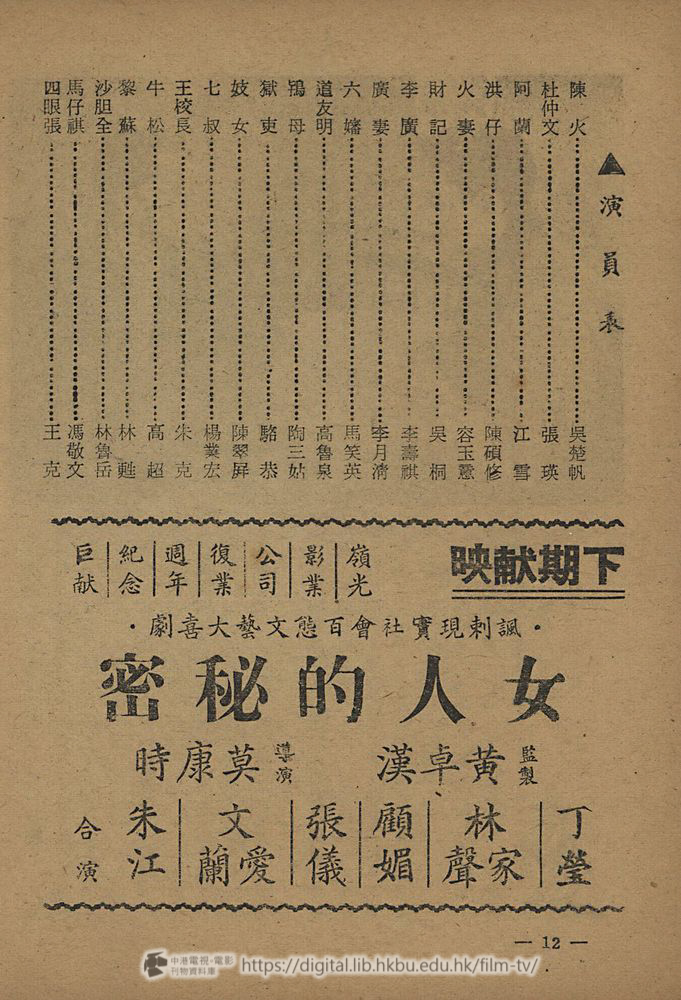 ▲演員表
陳火……吳楚帆
杜仲文……張瑛
阿蘭……江雪
洪仔……陳碩修
火妻……容玉意
財記……吳桐
李廣……李壽祺
廣妻……李月清
六嬸……馬笑英
道友明……高魯泉
鴇母……陶三姑
獄吏……駱恭
妓女……陳翠屏
七叔……楊業宏
王校長……朱克
牛松……高超
黎蘇……林甦
沙胆全……林魯岳
馬仔祺……馮敬文
四眼張……王克
下期献映
嶺光影業公司復業週年紀念巨献
·諷刺現實社會百態文藝大喜劇·
女人的秘密
監製 黃卓漢
導演 莫康時
丁瑩 林家聲 顧媚 張儀 文愛蘭 朱江 合演
— 12 —
中港電視·電影刊物資料庫
https://digital.lib.hkbu.edu.hk/film-tv/